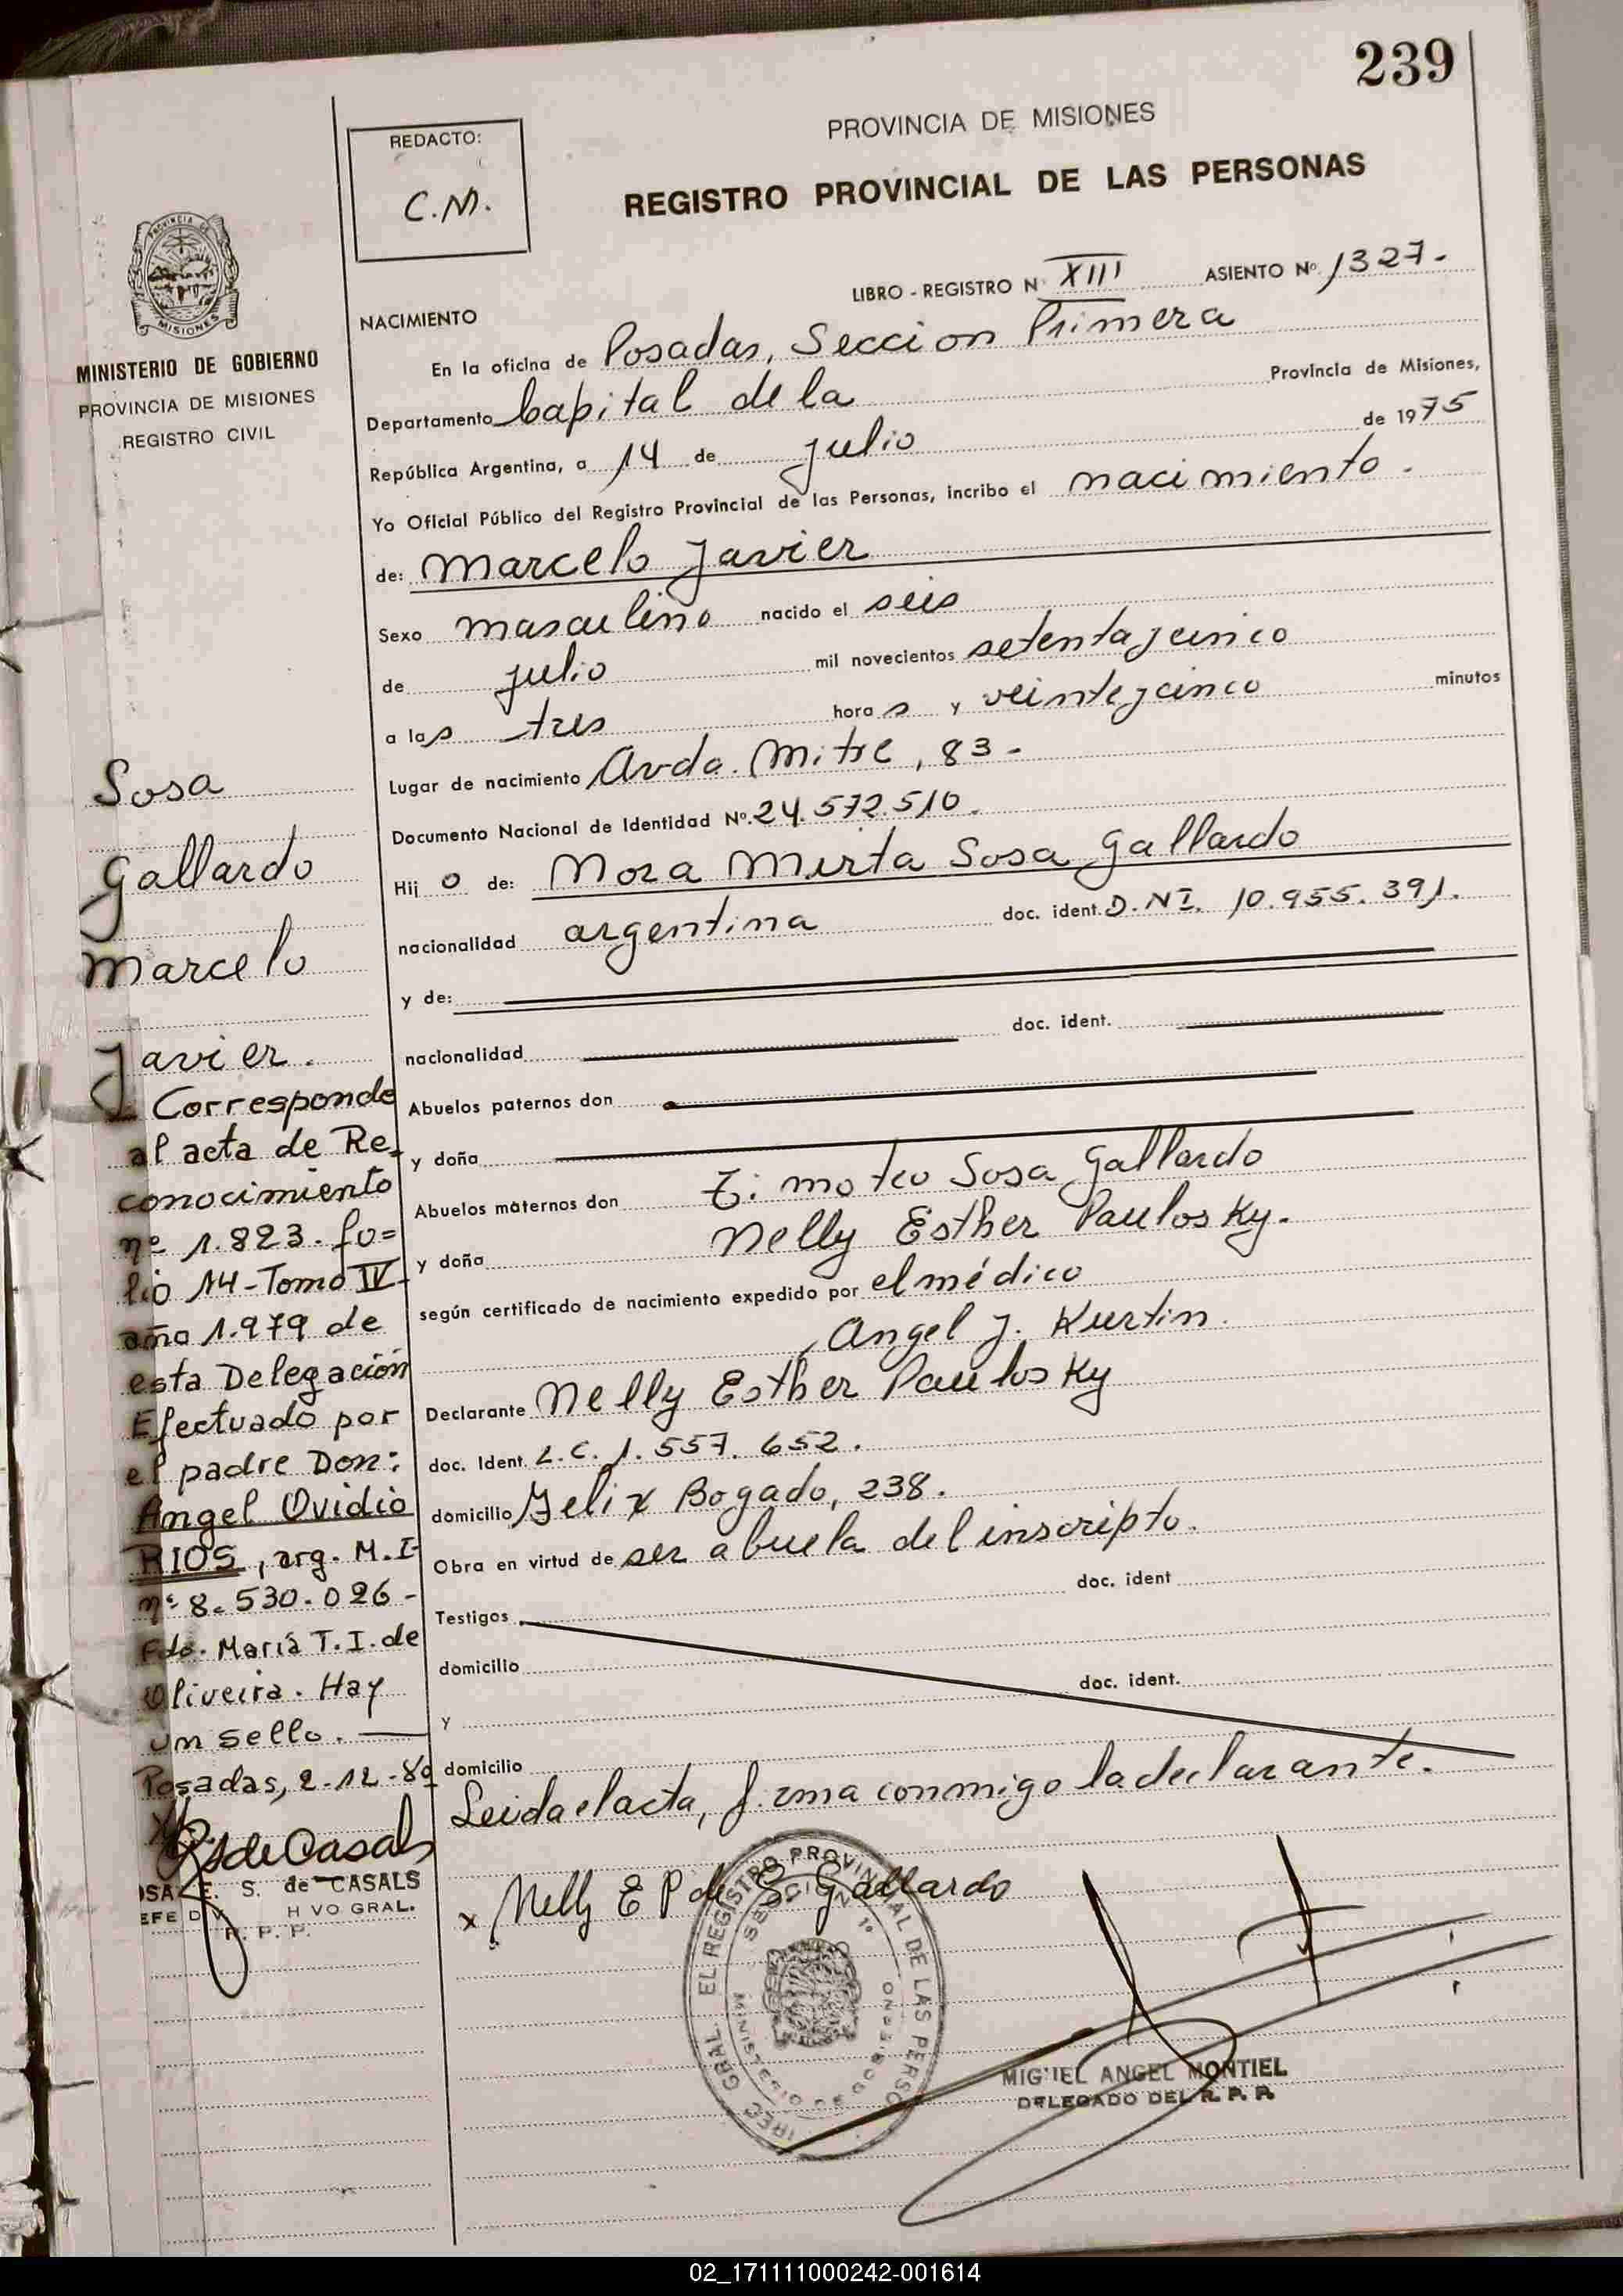 239
PROVINCIA DE MISIONES
REGISTRO PROVINCIAL DE LAS PERSONAS
REDACTO:
C.M.
PROVINCIA DE
MISIONES
MINISTERIO DE GOBIERNO
PROVINCIA DE MISIONES
REGISTRO CIVIL
LIBRO - REGISTRO N XIII ASIENTO Nº 1327.-
NACIMIENTO
En la oficina de Posadas, Seccion Primera
Departamento Capital de la Provincia de Misiones,
República Argentina, a 14 de julio de 1975
Yo Oficial Público del Registro Provincial de las Personas, incribo el nacimiento.
de: Marcelo Javier
Sexo masculino nacido el seis
de julio mil novecientos setentaycinco
a las tres horas y veinteycinco minutos
Lugar de nacimiento Avda. Mitre, 83-
Documento Nacional de Identidad Nº. 24.572.510.
Hijo de: Nora Mirta Sosa Gallardo
nacionalidad argentina doc. ident. D.N.I. 10.955.391.
y de:
nacionalidad doc. ident.
Abuelos paternos don
y doña
Abuelos maternos don Timoteo Sosa Gallardo
y doña Nelly Esther Paulosky.
según certificado de nacimiento expedido por el médico
Angel J. Kurtin.
Declarante Nelly Esther Paulosky
doc. Ident. L.C. 1.557.652.
domicilio Felix Bogado, 238.
Obra en virtud de ser abuela del inscripto.
doc. ident
Testigos
domicilio
doc. ident.
y
domicilio
Leida el acta, firma conmigo la declarante.
x Nelly E P de S. Gallardo
Sosa
Gallardo
Marcelo
Javier.
Corresponde
al acta de Re-
conocimiento
nº 1.823. fo=
lio 14-Tomo IV-
año 1.979 de
esta Delegación
Efectuado por
el padre Don:
Angel Ovidio
RIOS, arg. M.I-
nº 8.530.026-
Fdo. María T.I. de
Oliveira. Hay
un sello.
Posadas, 2-12-80
RSdeCasals
OSA E. S. de CASALS
EFE DIV H VO GRAL.
R. P. P.
EL REGISTRO PROVINCIAL DE LAS PERSO
IREC GRAL.
SECCION 1º
MINISTERIO DE GOBIERNO
MIGUEL ANGEL MONTIEL
DELEGADO DEL R. P. P.
02_171111000242-001614